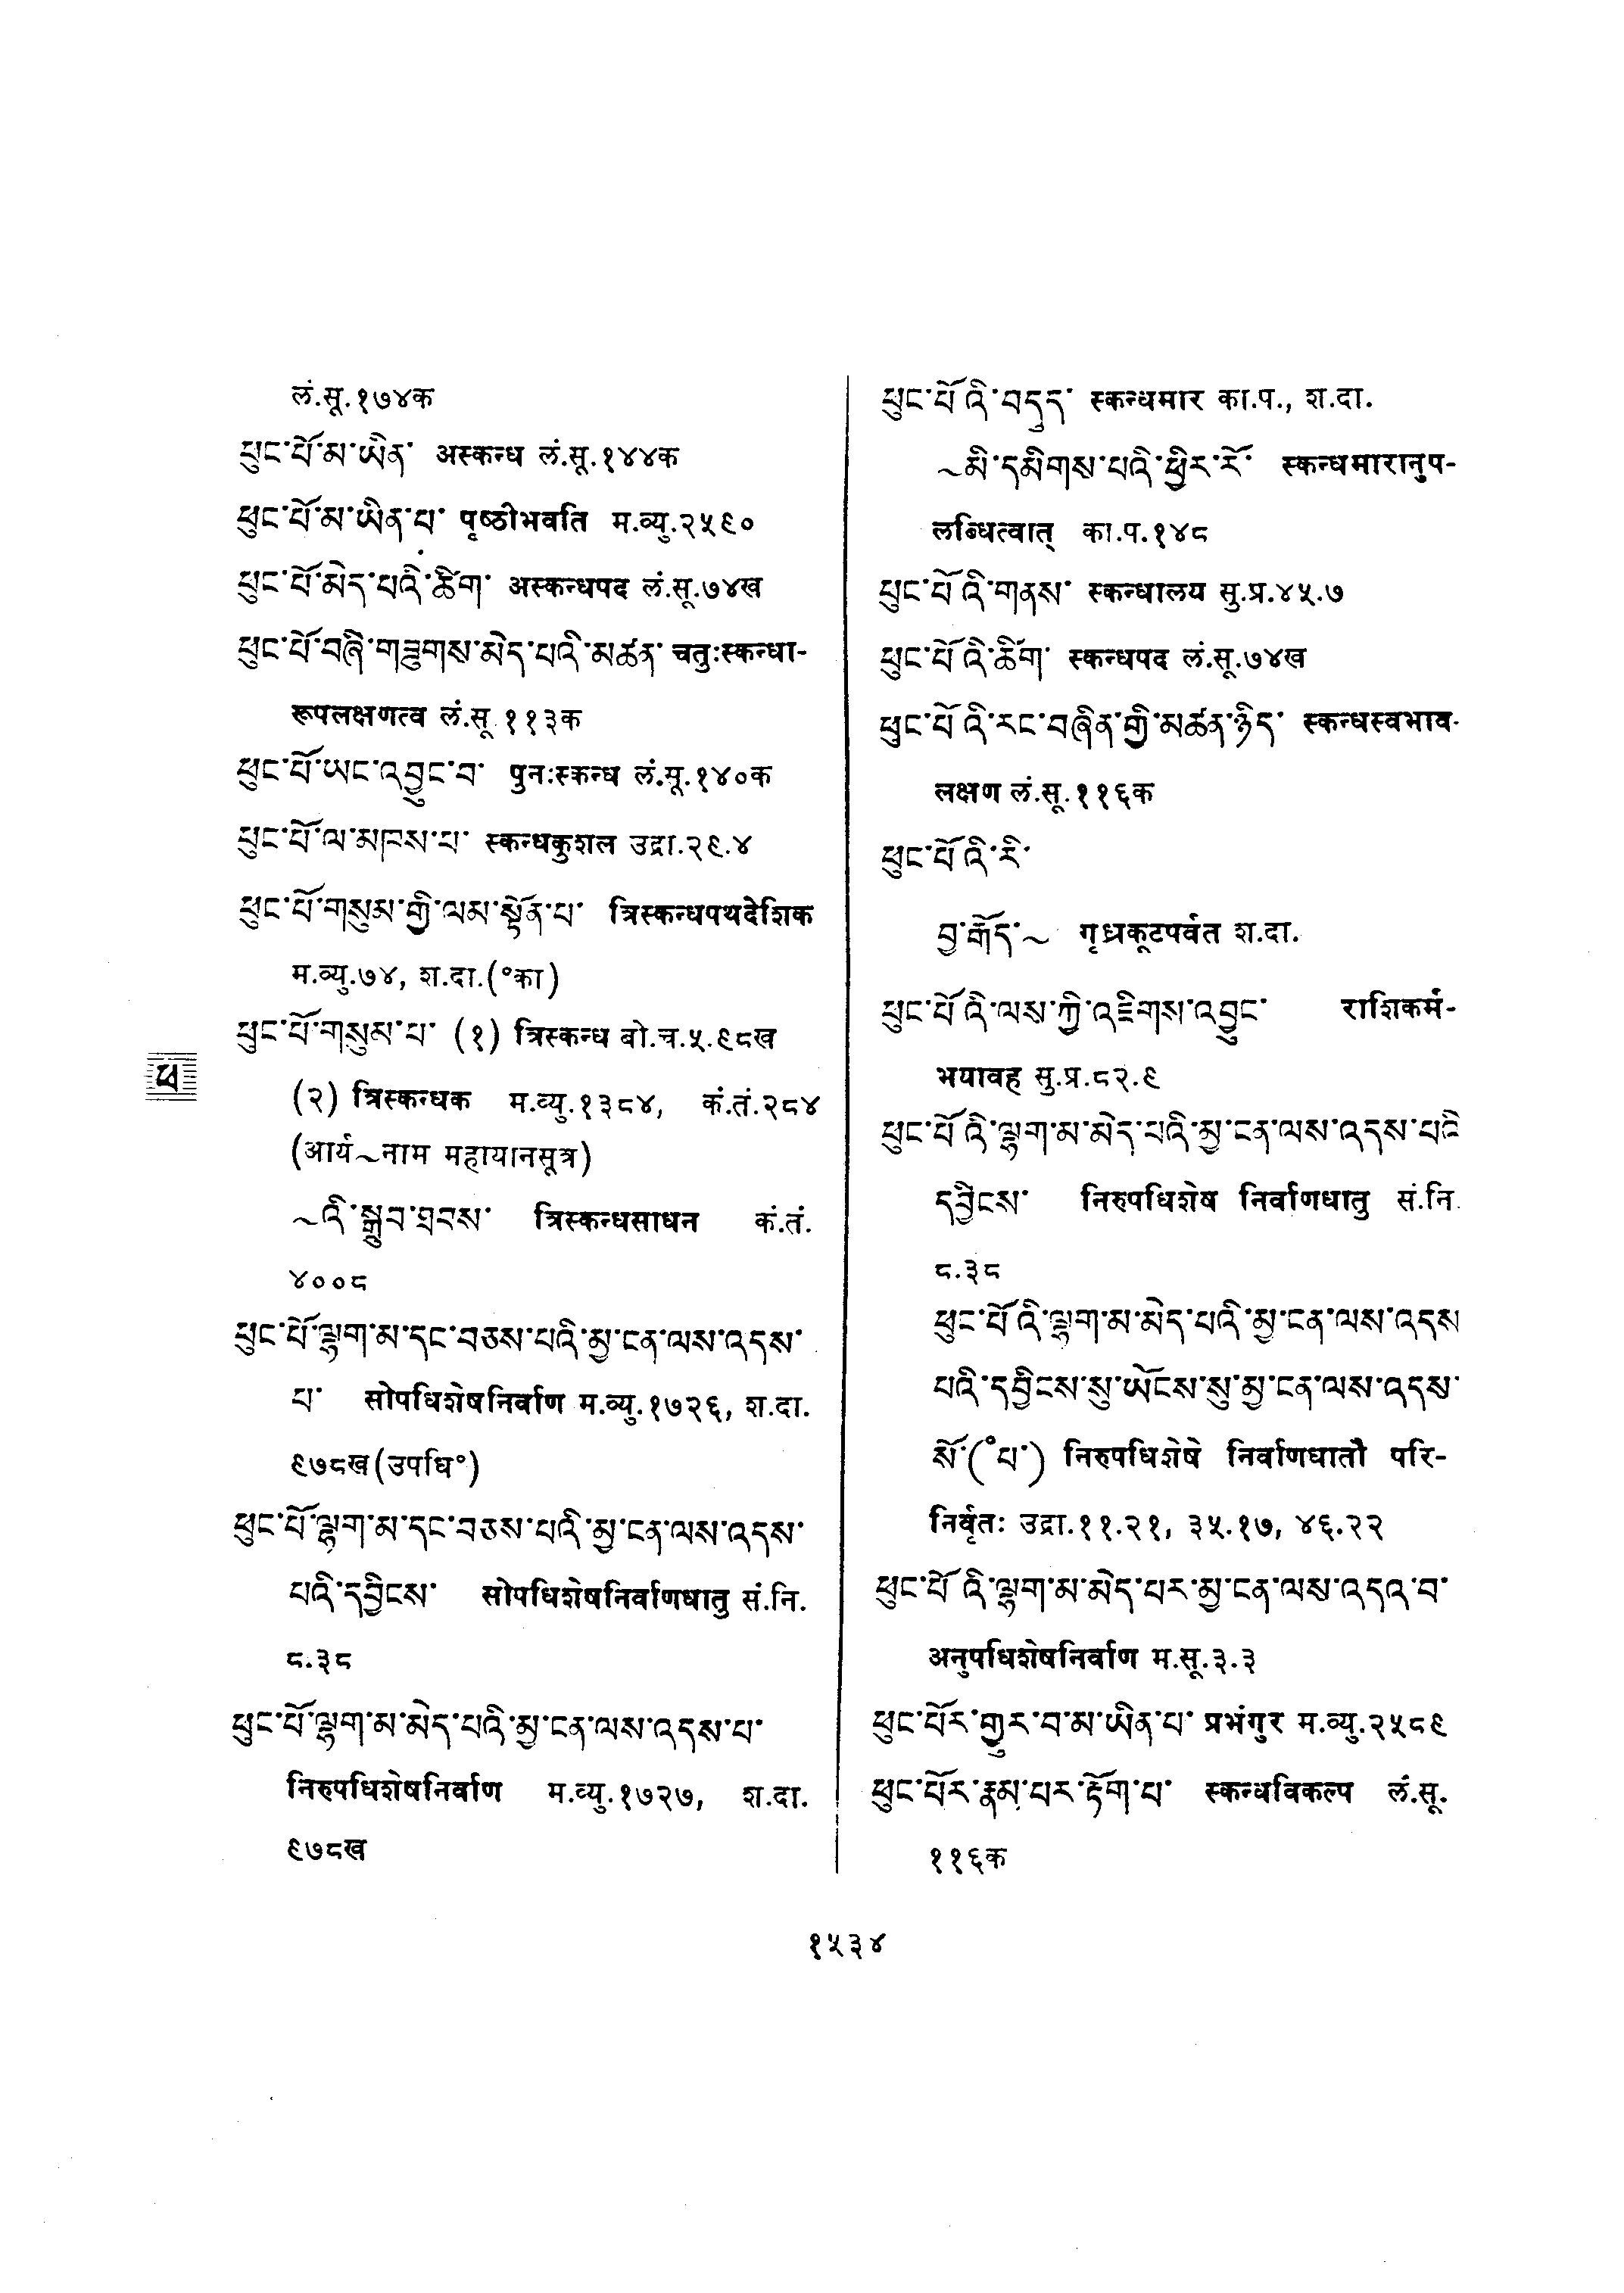 लं.सू.१७४क
ཕུང་པོ་མ་ཡིན་ अस्कन्ध लं.सू.१४४क
ཕུང་པོ་མ་ཡིན་པ་ पृष्ठीभवति म.व्यु.२५९०
ཕུང་པོ་མེད་པའི་ཚིག་ अस्कन्धपद लं.सू.७४ख
ཕུང་པོ་བཞི་གཟུགས་མེད་པའི་མཚན་ चतुःस्कन्धा-
रूपलक्षणत्व लं.सू.११३क
ཕུང་པོ་ཡང་འབྱུང་བ་ पुनःस्कन्ध लं.सू.१४०क
ཕུང་པོ་ལ་མཁས་པ་ स्कन्धकुशल उद्रा.२९.४
ཕུང་པོ་གསུམ་གྱི་ལམ་སྟོན་པ་ त्रिस्कन्धपथदेशिक
म.व्यु.७४, श.दा.(°का)
ཕུང་པོ་གསུམ་པ་ (१) त्रिस्कन्ध बो.च.५.९८ख
ཕ
(२) त्रिस्कन्धक म.व्यु.१३८४, कं.तं.२८४
(आर्य~नाम महायानसूत्र)
~འི་སྒྲུབ་ཐབས་ त्रिस्कन्धसाधन कं.तं.
४००८
ཕུང་པོ་ལྷག་མ་དང་བཅས་པའི་མྱ་ངན་ལས་འདས་
པ་ सोपधिशेषनिर्वाण म.व्यु.१७२६, श.दा.
९७८ख(उपधि°)
ཕུང་པོ་ལྷག་མ་དང་བཅས་པའི་མྱ་ངན་ལས་འདས་
པའི་དབྱིངས་ सोपधिशेषनिर्वाणधातु सं.नि.
८.३८
ཕུང་པོ་ལྷག་མ་མེད་པའི་མྱ་ངན་ལས་འདས་པ་
निरुपधिशेषनिर्वाण म.व्यु.१७२७, श.दा.
९७८ख
ཕུང་པོའི་བདུད་ स्कन्धमार का.प., श.दा.
~མི་དམིགས་པའི་ཕྱིར་རོ་ स्कन्धमारानुप-
लब्धित्वात् का.प.१४८
ཕུང་པོའི་གནས་ स्कन्धालय सु.प्र.४५.७
ཕུང་པོའི་ཚིག་ स्कन्धपद लं.सू.७४ख
ཕུང་པོའི་རང་བཞིན་གྱི་མཚན་ཉིད་ स्कन्धस्वभाव-
लक्षण लं.सू.११६क
ཕུང་པོའི་རི་
བྱ་རྒོད་~ गृध्रकूटपर्वत श.दा.
ཕུང་པོའི་ལས་ཀྱི་འཇིགས་འབྱུང་ राशिकर्म-
भयावह सु.प्र.८२.९
ཕུང་པོའི་ལྷག་མ་མེད་པའི་མྱ་ངན་ལས་འདས་པའི
དབྱིངས་ निरुपधिशेष निर्वाणधातु सं.नि.
८.३८
ཕུང་པོའི་ལྷག་མ་མེད་པའི་མྱ་ངན་ལས་འདས
པའི་དབྱིངས་སུ་ཡོངས་སུ་མྱ་ངན་ལས་འདས་
སོ་(°པ་) निरुपधिशेषे निर्वाणधातौ परि-
निर्वृतः उद्रा.११.२१, ३५.१७, ४६.२२
ཕུང་པོའི་ལྷག་མ་མེད་པར་མྱ་ངན་ལས་འདའ་བ་
अनुपधिशेषनिर्वाण म.सू.३.३
ཕུང་པོར་གྱུར་བ་མ་ཡིན་པ་ प्रभंगुर म.व्यु.२५८९
ཕུང་པོར་རྣམ་པར་རྟོག་པ་ स्कन्धविकल्प लं.सू.
११६क
१५३४